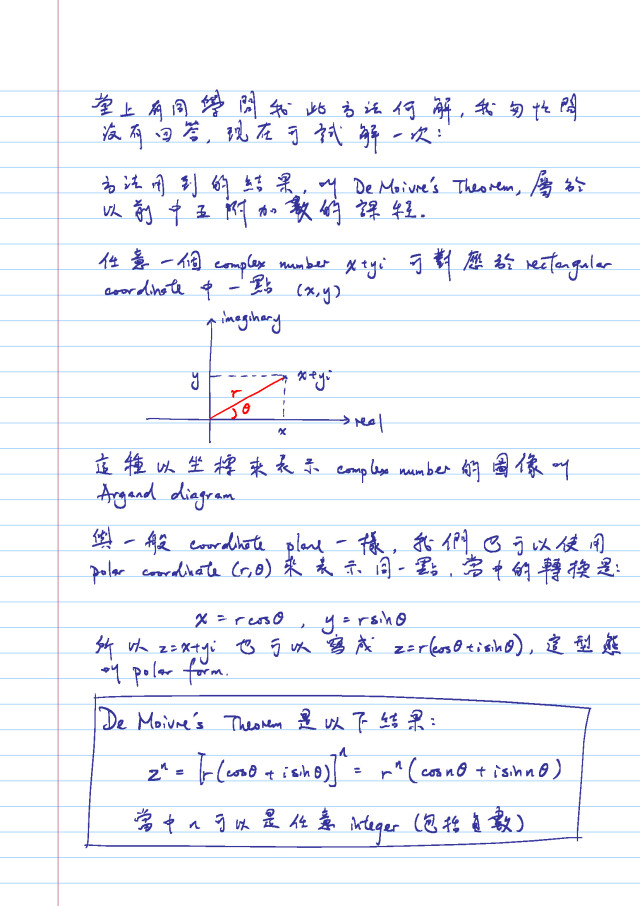 堂上有同學問我此方法何解,我匆忙間
沒有回答,現在可試解一次:
方法用到的結果,叫 De Moivre's Theorem,屬於
以前中五附加數的課程.
任意一個 complex number x+yi 可對應於 rectangular
coordinate 中一點 (x,y)
imaginary
y
x+yi
r
θ
x
real
這種以坐標來表示 complex number 的圖像叫
Argand diagram
與一般 coordinate plane 一樣,我們也可以使用
polar coordinate (r,θ) 來表示同一點,當中的轉換是:
x = r cosθ , y = r sinθ
所以 z=x+yi 也可以寫成 z=r(cosθ+isinθ),這型態
叫 polar form.
De Moivre's Theorem 是以下結果:
zⁿ = [r(cosθ + i sinθ)]ⁿ = rⁿ(cos nθ + i sin nθ)
當中 n 可以是任意 integer (包括負數)